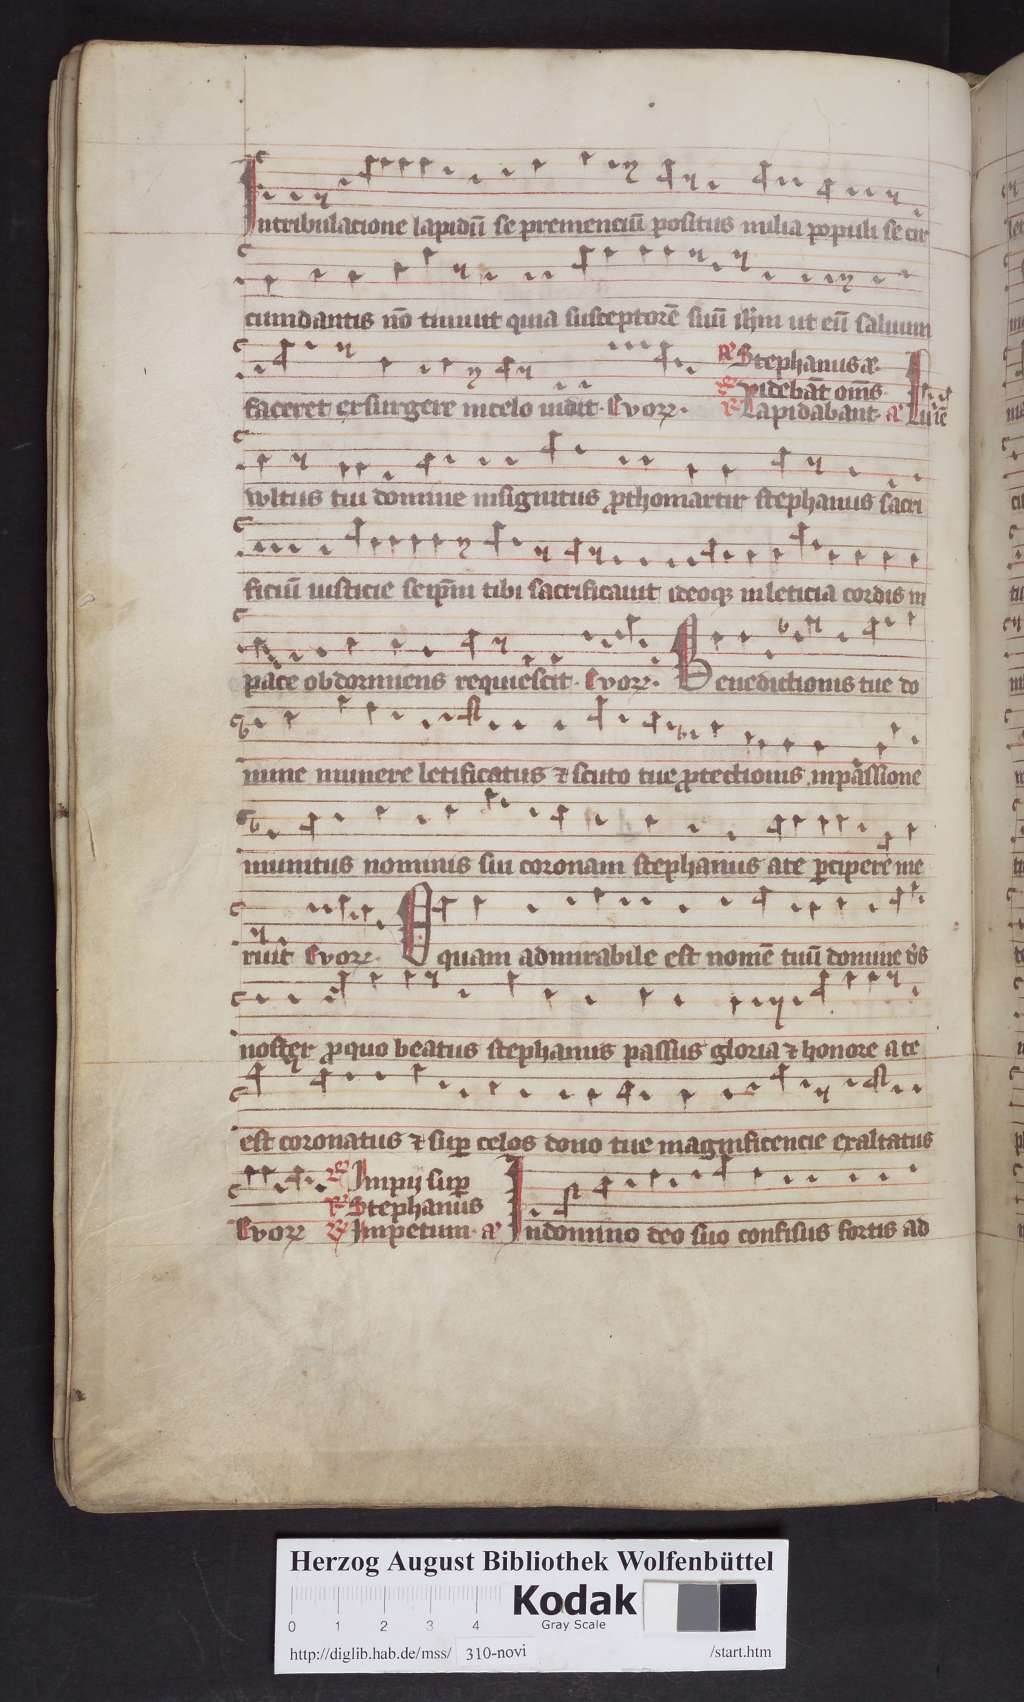 Intribulacione lapidū se premenciū positus milia populi se cir
cumdantis nō timuit quia susceptorē suū ihm ut eū saluum
R Stephanus a
V videbāt om̄s
faceret exsurgere incelo uidit · Evoꝝ · R Lapidabant · a Lumē
wltus tui domine insignitus ꝓthomartir stephanus sacri
ficiū iusticie seip̄m tibi sacrificauit ideoqꝫ inleticia cordis in
pace obdormiens requiescit · Evoꝝ · Benedictionis tue do
mine munere letificatus ⁊ scuto tue ꝓtectionis inpassione
munitus nominis sui coronam stephanus ate ꝑcipere me
ruit Evoꝝ · O quam admirabile est nomē tuū domine d̄s
noster ꝓquo beatus stephanus passus gloria ⁊ honore a te
est coronatus ⁊ suꝑ celos dono tue magnificencie exaltatus
V Impij suꝑ
R Stephanus
Evoꝝ V Impetum · a Indomino deo suo confisus fortis ad
Herzog August Bibliothek Wolfenbüttel
0 1 2 3 4
Kodak
Gray Scale
http://diglib.hab.de/mss/ 310-novi /start.htm